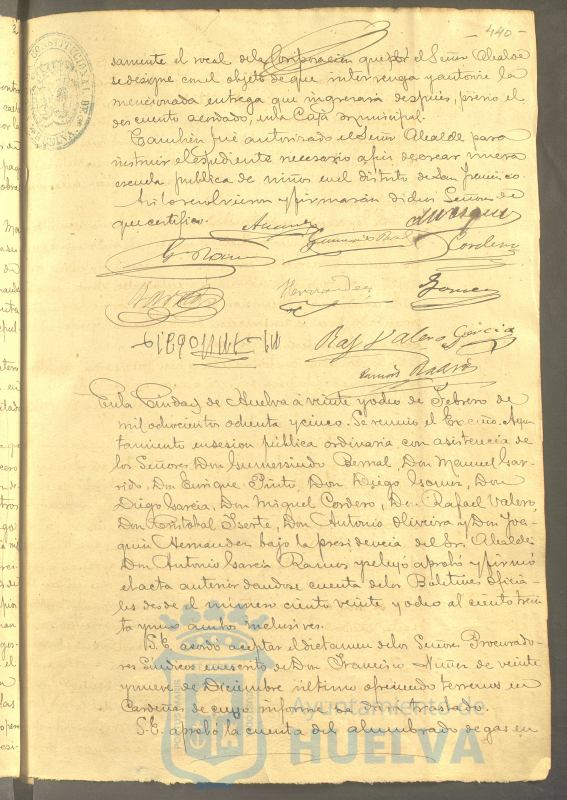 - 440 -
samente el vocal de la Corporación que por el Señor Alcalde
se designe con el objeto de que intervenga y autorice la
mencionada entrega que ingresará después, previo el
descuento acordado, en la Caja municipal.
Tambien fué autorizado el Señor Alcalde para
instruir el espediente necesario a fin de crear nueva
escuela publica de niños en el distrito de San Francisco.
Asi lo resolvieron y firmarán dichos Señores de
que certifico.
Cordero
Hernandez
Gomez
Raf Valero Garcia
En la Ciudad de Huelva á veinte y ocho de Febrero de
mil ochocientos ochenta y cinco. Se reunió el Excmo. Ayun-
tamiento en sesion pública ordinaria con asistencia de
los Señores Don Gumersindo Bernal, Don Manuel Gar-
rido, Don Enrique Pinto, Don Diego Gomez, Don
Diego Garcia, Don Miguel Cordero, Don Rafael Valero,
Don Cristobal Iserte, Don Antonio Oliveira y Don Joa-
quin Hernandez bajo la presidencia del Sr. Alcalde
Don Antonio Garcia Ramos y se leyó aprobó y firmó
el acta anterior dandose cuenta de los Boletines oficia-
les desde el número ciento veinte y ocho al ciento trein
ta y uno ambos inclusives.
S.E. acordó aceptar el dictamen de los Señores Procurado-
res Síndicos en escrito de Don Francisco Nuñez de veinte
y nueve de Diciembre último ofreciendo terrenos en
Cardeñas de cuyo informe se dará traslado.
S.E. aprobó la cuenta del alumbrado de gas en
Ayuntamiento de
HUELVA